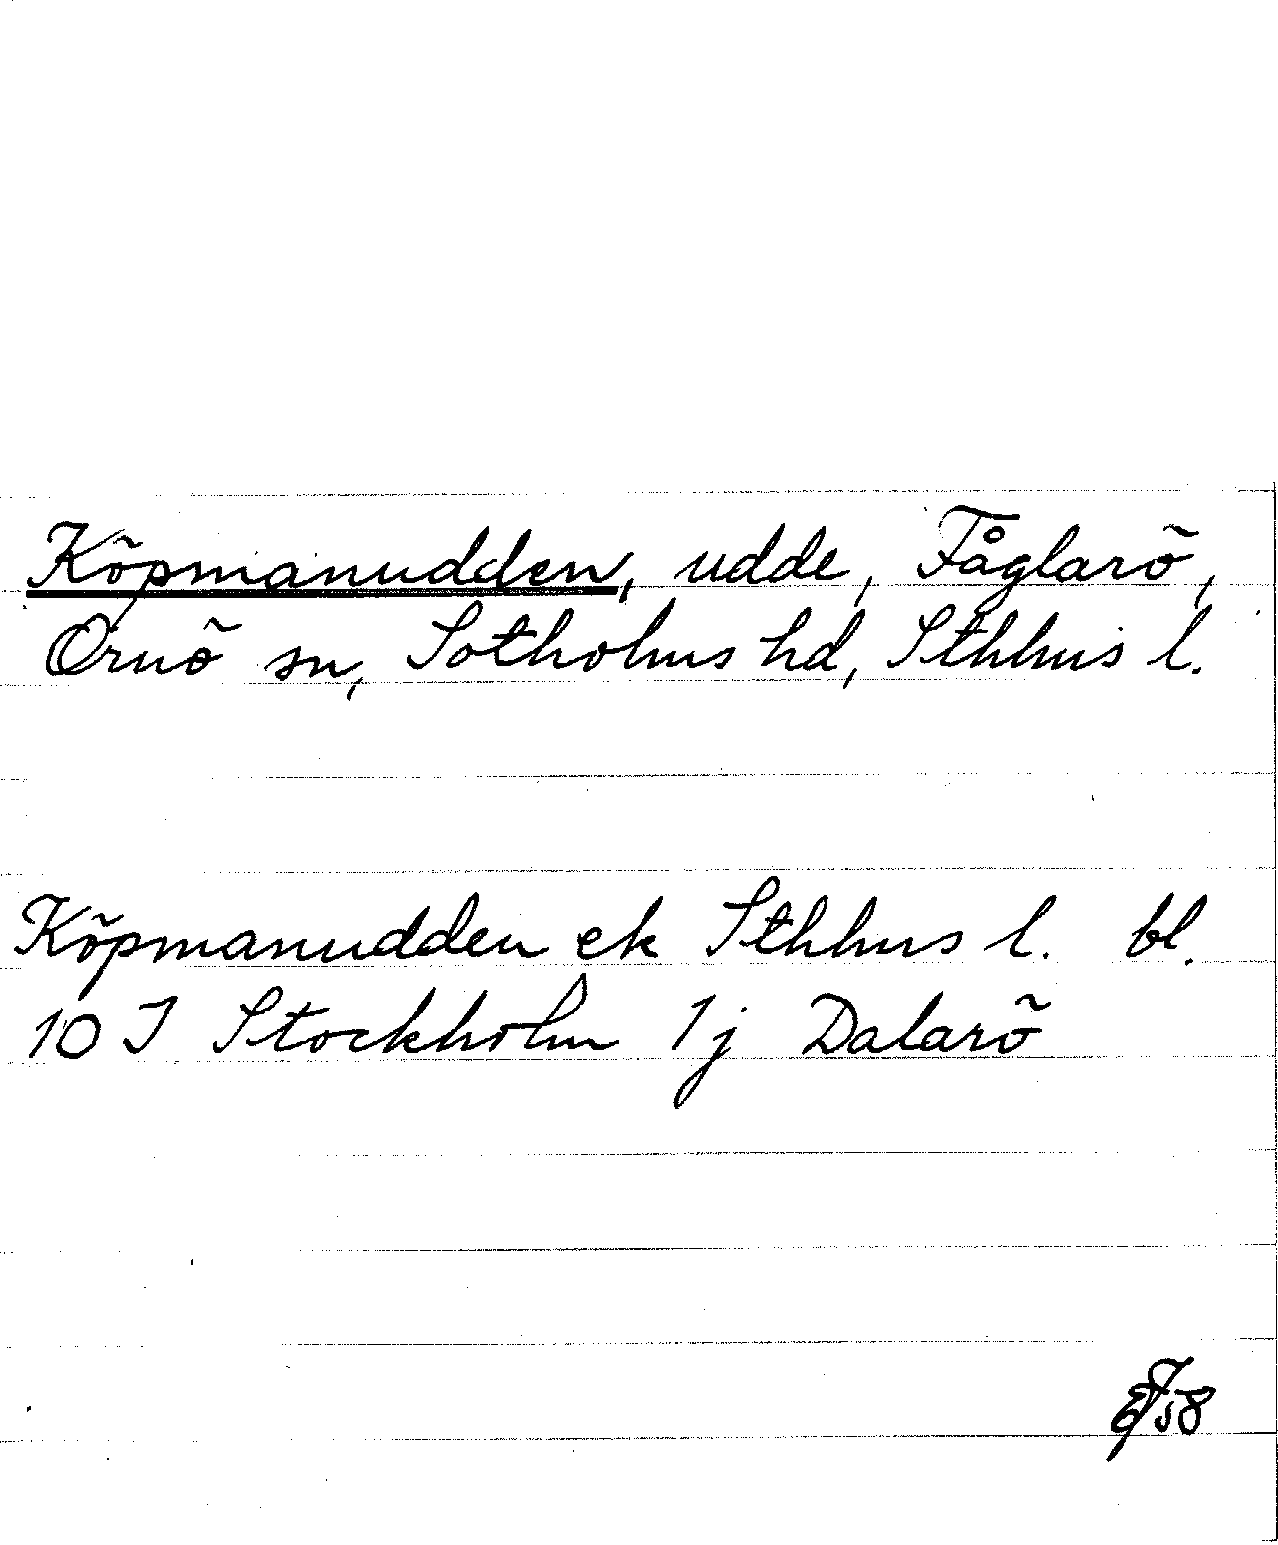 Köpmanudden, udde, Fåglarö,
Ornö sn, Sotholms hd, Sthlms l.
Köpmanudden ek Sthlms l. bl.
10 I Stockholm 1j Dalarö
58